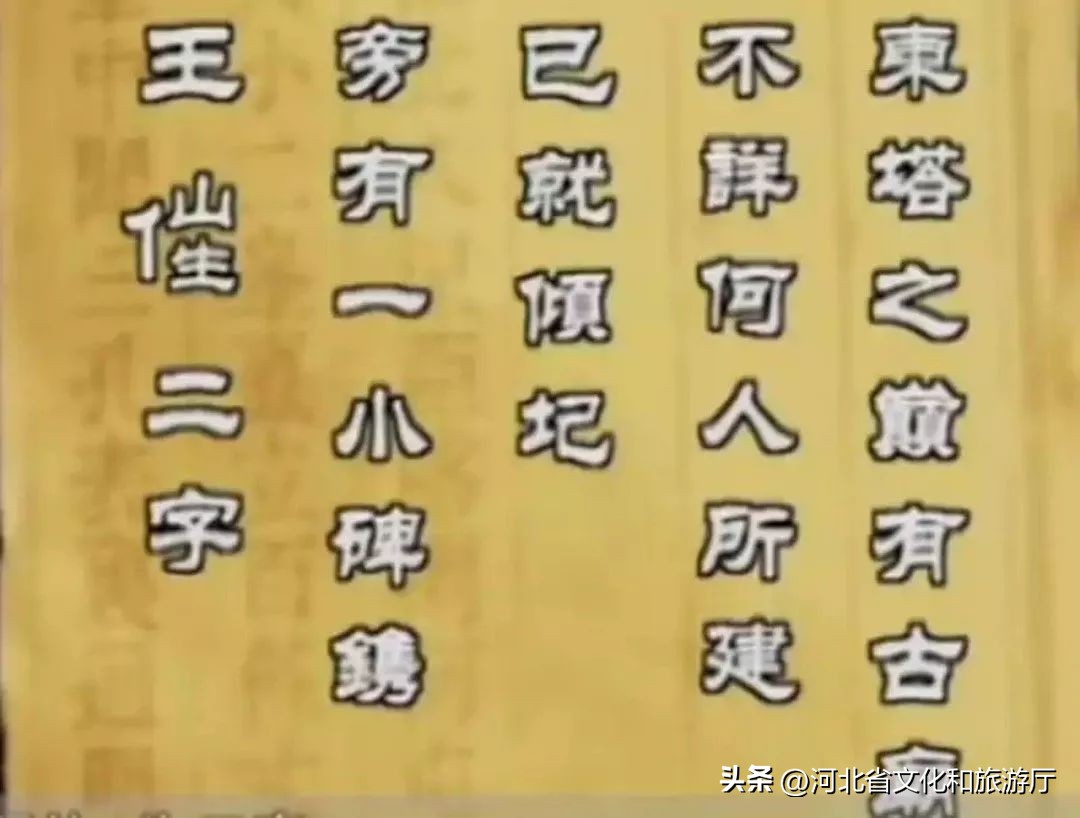 東塔之巔有古
不詳何人所建
已就傾圮
旁有一小碑鐫
王 二字
头条 @河北省文化和旅游厅